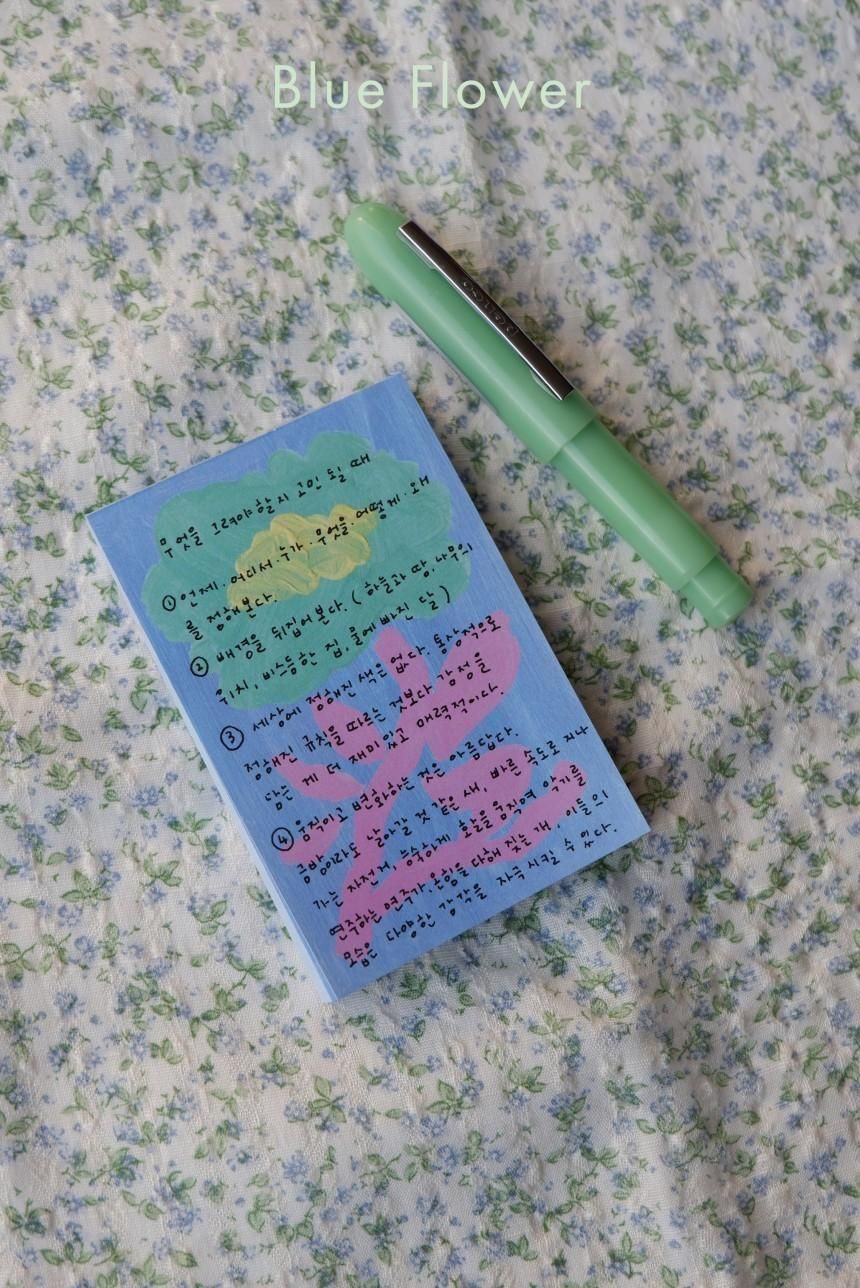 Blue Flower
penco
무엇을 그려야할지 고민 될 때
① 언제. 어디서. 누가. 무엇을. 어떻게. 왜
를 정해본다.
② 배경을 뒤집어본다. ( 하늘과 땅, 나무의
위치, 비스듬한 집, 물에 빠진 달 )
③ 세상에 정해진 색은 없다. 통상적으로
정해진 규칙을 따르는 것보다 감정을
담는 게 더 재미있고 매력적이다.
④ 움직이고 변화하는 것은 아름답다.
금방이라도 날아갈 것 같은 새, 빠른 속도로 지나
가는 자전거, 능숙하게 활을 움직이며 악기를
연주하는 연주가, 온힘을 다해 짖는 개, 이들의
모습은 다양한 감각을 자극시킬 수 있다.